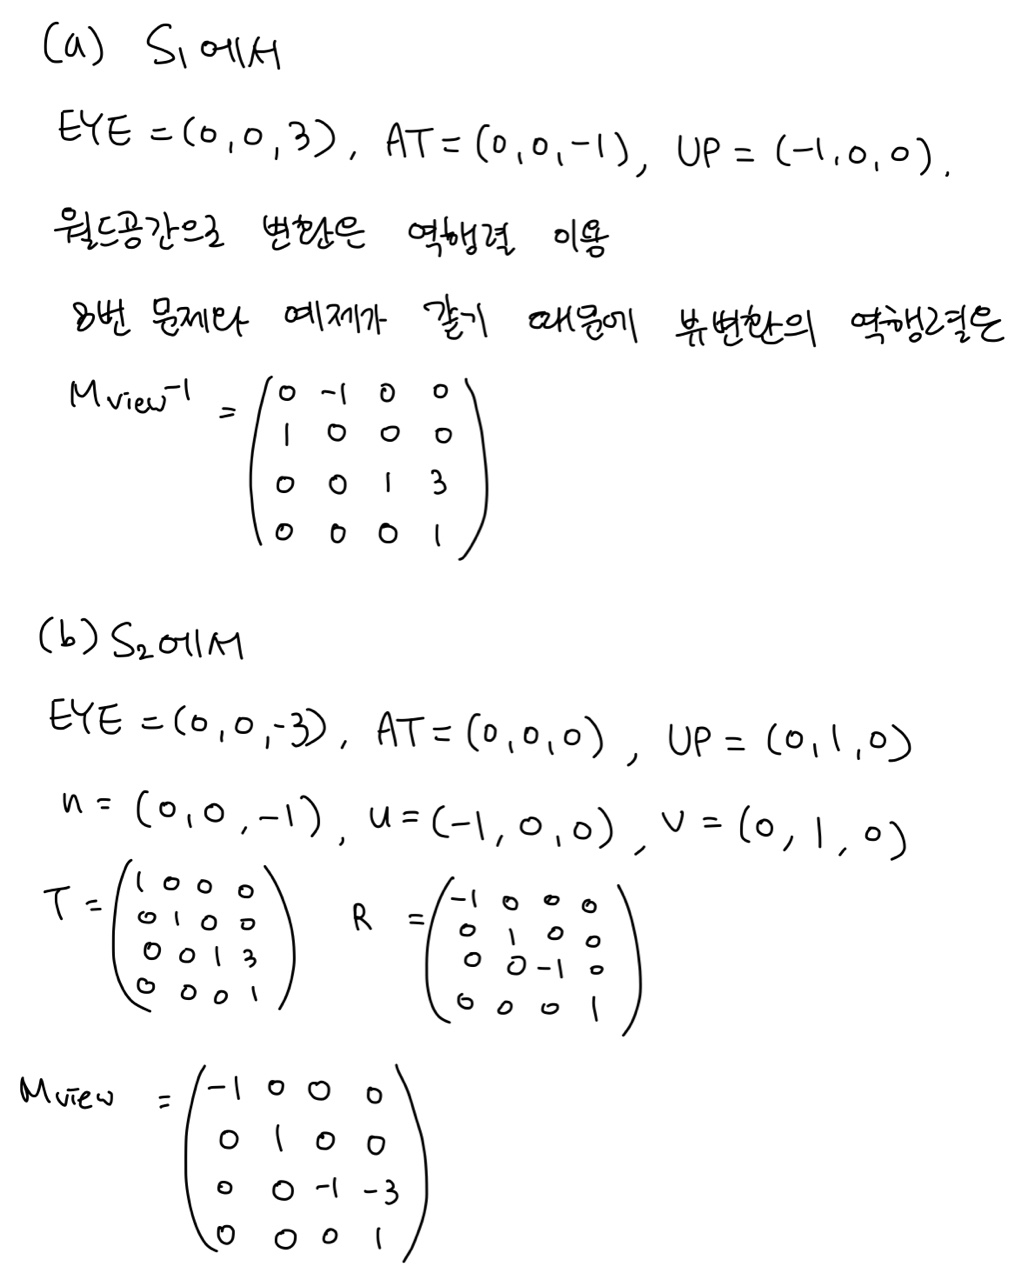 (a) S₁에서
EYE = (0, 0, 3), AT = (0, 0, -1), UP = (-1, 0, 0).
월드공간으로 변환은 역행렬 이용
8번 문제와 예제가 같기 때문에 뷰변환의 역행렬은
Mview⁻¹ = 
0 -1 0 0
1 0 0 0
0 0 1 3
0 0 0 1
(b) S₂에서
EYE = (0, 0, -3), AT = (0, 0, 0), UP = (0, 1, 0)
n = (0, 0, -1), u = (-1, 0, 0), v = (0, 1, 0)
T =
1 0 0 0
0 1 0 0
0 0 1 3
0 0 0 1
R =
-1 0 0 0
0 1 0 0
0 0 -1 0
0 0 0 1
Mview =
-1 0 0 0
0 1 0 0
0 0 -1 -3
0 0 0 1